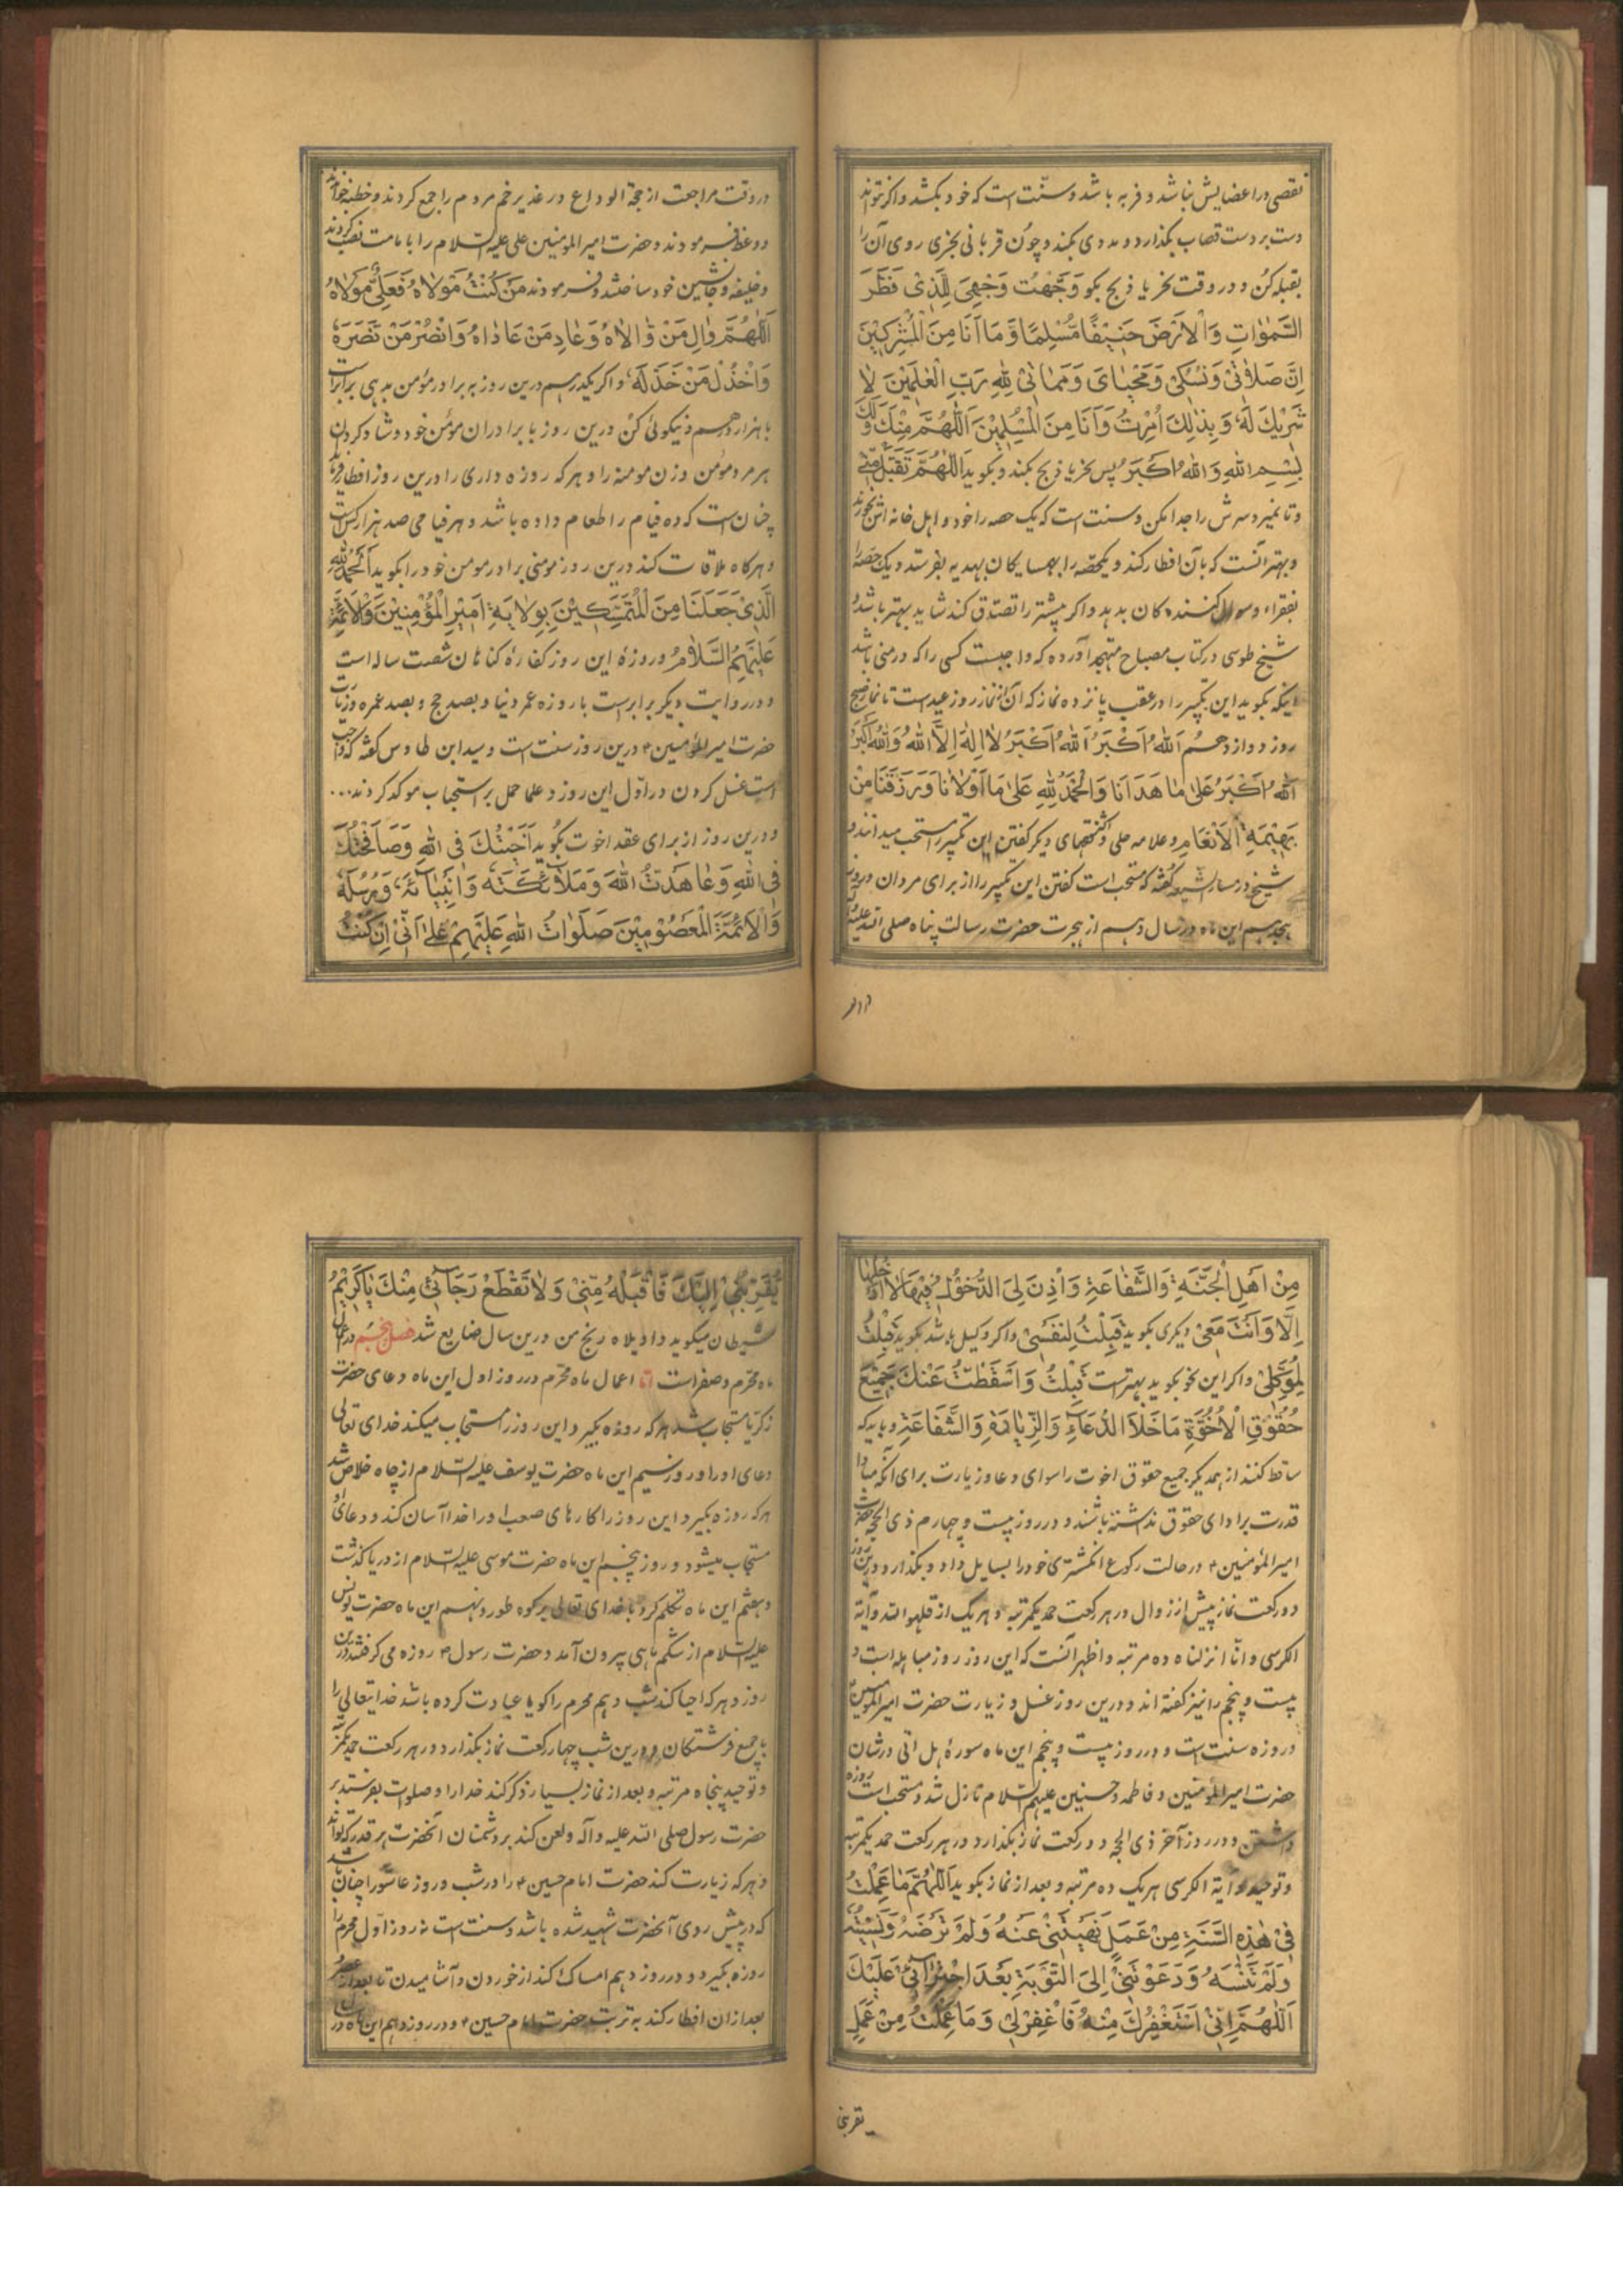 نقصی در اعضایش نباشد و فربه باشد و سنّت است که خود بکشد و اگر نتواند
دست بر دست قصاب بگذارد و مددی بکند و چون قربانی بخری روی آن را
بقبله کن و در وقت نحر یا ذبح بگو وَجَّهْتُ وَجْهِیَ لِلَّذِیْ فَطَرَ
السَّمٰوَاتِ وَالْاَرْضَ حَنِیْفًا مُّسْلِمًا وَّمَا اَنَا مِنَ الْمُشْرِکِیْنَ
اِنَّ صَلَاتِیْ وَنُسُکِیْ وَمَحْیَایَ وَمَمَاتِیْ لِلّٰهِ رَبِّ الْعٰلَمِیْنَ لَا
شَرِیْكَ لَهٗ وَبِذٰلِكَ اُمِرْتُ وَاَنَا مِنَ الْمُسْلِمِیْنَ اَللّٰهُمَّ مِنْكَ وَلَكَ
بِسْمِ اللهِ وَاللهُ اَکْبَرُ پس نحر یا ذبح بکند و بگوید اَللّٰهُمَّ تَقَبَّلْ مِنِّیْ
و تا نمیرد سرش را جدا مکن و سنت است که یک حصه را خود و اهل خانه اش بخورند
و بهتر آنست که بآن افطار کند و یکحصه را بهمسایگان بهدیه بفرستد و یک حصه را
بفقراء و سوال کنندهکان بدهد و اگر بیشتر را تصدّق کند شاید بهتر باشد و
شیخ طوسی در کتاب مصباح متهجد آورده که واجبست کسی را که در منی باشد
اینکه بگوید این تکبیر را در عقب پانزده نماز که آن از نماز روز عید است تا نماز صبح
روز دوازدهم اَللهُ اَکْبَرُ اَللهُ اَکْبَرُ لَا اِلٰهَ اِلَّا اللهُ وَاللهُ اَکْبَرُ
اَللهُ اَکْبَرُ عَلٰی مَا هَدَانَا وَالْحَمْدُ لِلّٰهِ عَلٰی مَا اَوْلَانَا وَرَزَقَنَا مِنْ
بَهِیْمَةِ الْاَنْعَامِ و علامه حلی و فقهای دیگر گفتن این تکبیر را مستحب میدانند و
شیخ در مسار الشیعه گفته که مستحب است گفتن این تکبیر را از برای مردان و روز
هجدهم این ماه در سال دهم از هجرت حضرت رسالت پناه صلی الله علیه
در وقت مراجعت از حجة الوداع در غدیر خم مردم را جمع کردند و خطبه خواندند
و وعظ فرمودند و حضرت امیر المؤمنین علی علیه السّلام را بامامت نصب کردند
و خلیفه و جانشین خود ساختند و فرمودند مَنْ کُنْتُ مَوْلَاهُ فَعَلِیٌّ مَوْلَاهُ
اَللّٰهُمَّ وَالِ مَنْ وَّالَاهُ وَعَادِ مَنْ عَادَاهُ وَانْصُرْ مَنْ نَصَرَهٗ
وَاخْذُلْ مَنْ خَذَلَهٗ و اگر یکدرهم درین روز به برادر مؤمن بدهی برابر است
با هزار درهم و نیکوئی کن درین روز با برادران مؤمن خود و شاد گردان
هر مرد مؤمن و زن مومنه را و هر که روزه داری را درین روز افطار فرماید
چنان است که ده فیام را طعام داده باشد و هر فیامی صد هزار کس است
و هرگاه ملاقات کند درین روز مؤمنی برادر مومن خود را بگوید اَلْحَمْدُ لِلّٰهِ
الَّذِیْ جَعَلَنَا مِنَ الْمُتَمَسِّکِیْنَ بِوِلَایَةِ اَمِیْرِ الْمُؤْمِنِیْنَ وَالْاَئِمَّةِ
عَلَیْهِمُ السَّلَامُ و روزهٔ این روز کفارهٔ گناهان شصت ساله است
و در روایت دیگر برابر است با روزه عمر دنیا و بصد حج و بصد عمره و زیارت
حضرت امیر المؤمنین ع درین روز سنت است و سید ابن طاوس گفته که واجب
است غسل کردن در اوّل این روز و علما حمل بر استحباب موکد کردند...
و درین روز از برای عقد اخوت بگوید اٰخَیْتُكَ فِی اللهِ وَصَافَحْتُكَ
فِی اللهِ وَعَاهَدْتُ اللهَ وَمَلَائِکَتَهٗ وَاَنْبِیَائَهٗ وَرُسُلَهٗ
وَالْاَئِمَّةَ الْمَعْصُوْمِیْنَ صَلَوَاتُ اللهِ عَلَیْهِمْ عَلٰی اَنِّیْ اِنْ کُنْتُ
مِنْ اَهْلِ الْجَنَّةِ وَالشَّفَاعَةِ وَاُذِنَ لِیَ الدُّخُوْلُ فِیْهَا لَا اَدْخُلُهَا
اِلَّا وَاَنْتَ مَعِیْ دیگری بگوید قَبِلْتُ لِنَفْسِیْ و اگر وکیل باشد بگوید قَبِلْتُ
لِمُوَکِّلِیْ و اگر این نحو بگوید بهتر است قَبِلْتُ وَاَسْقَطْتُ عَنْكَ جَمِیْعَ
حُقُوْقِ الْاُخُوَّةِ مَا خَلَا الدُّعَاءِ وَالزِّیَارَةِ وَالشَّفَاعَةِ و باید که
ساقط کنند از همدیگر جمیع حقوق اخوت را سوای دعا و زیارت برای آنکه مبادا
قدرت بر ادای حقوق نداشته باشند و در روز بیست و چهارم ذی الحجه حضرت
امیر المؤمنین ع در حالت رکوع انگشتری خود را بسایل داد و بگذارد درین روز
دو رکعت نماز پیش از زوال در هر رکعت حمد یکمرتبه و هر یک از قلهو الله و آیة
الکرسی و انّا انزلناه ده مرتبه و اظهر آنست که این روز روز مباهله است و
بیست و پنجم را نیز گفته اند و درین روز غسل و زیارت حضرت امیر المؤمنین
و روزه سنت است و در روز بیست و پنجم این ماه سورهٔ هل اتی در شان
حضرت امیر المؤمنین و فاطمه و حسنین علیهم السّلام نازل شد و مستحب است روزه
داشتن و در روز آخر ذی الحجه دو رکعت نماز بگذارد در هر رکعت حمد یکمرتبه
و توحید و آیة الکرسی هر یک ده مرتبه و بعد از نماز بگوید اَللّٰهُمَّ مَا عَمِلْتُ
فِیْ هٰذِهِ السَّنَةِ مِنْ عَمَلٍ نَهَیْتَنِیْ عَنْهُ وَلَمْ تَرْضَهُ وَنَسِیْتُهُ
وَلَمْ تَنْسَهُ وَدَعَوْتَنِیْ اِلَی التَّوْبَةِ بَعْدَ اجْتِرَائِیْ عَلَیْكَ
اَللّٰهُمَّ اِنِّیْ اَسْتَغْفِرُكَ مِنْهُ فَاغْفِرْ لِیْ وَمَا عَمِلْتُ مِنْ عَمَلٍ
یقربنی
یُقَرِّبُنِیْ اِلَیْكَ فَاقْبَلْهُ مِنِّیْ وَلَا تَقْطَعْ رَجَائِیْ مِنْكَ یَا کَرِیْمُ
شیطان میگوید واویلاه رنج من درین سال ضایع شد فصل پنجم در اعمال
ماه محرّم و صفر است اما اعمال ماه محرّم در روز اول این ماه دعای حضرت
زکریّا مستجاب شد هر که روزه بگیرد این روز را مستجاب میکند خدای تعالی
دعای او را و روز سیم این ماه حضرت یوسف علیه السّلام از چاه خلاص شد
هر که روزه بگیرد این روز را کارهای صعب او را خدا آسان کند و دعای او
مستجاب میشود و روز پنجم این ماه حضرت موسی علیه السّلام از دریا گذشت
و هفتم این ماه تکلم کرد با خدای تعالی بر کوه طور و نهم این ماه حضرت یونس
علیه السّلام از شکم ماهی بیرون آمد و حضرت رسول ص روزه می گرفتند درین
روز و هر که احیا کند شب دهم محرم را گویا عبادت کرده باشد خدایتعالی را
با جمیع فرشتگان و درین شب چهار رکعت نماز بگذارد در هر رکعت حمد یکمرتبه
و توحید پنجاه مرتبه و بعد از نماز بسیار ذکر کند خدا را و صلوات بفرستد بر
حضرت رسول صلی الله علیه و آله و لعن کند بر دشمنان آنحضرت هر قدر که تواند
و هر که زیارت کند حضرت امام حسین ع را در شب و روز عاشورا چنان باشد
که در پیش روی آنحضرت شهید شده باشد و سنت است نه روز اوّل محرم را
روزه بگیرد و در روز دهم امساک کند از خوردن و آشامیدن تا بعد از عصر
بعد از ان افطار کند به تربت حضرت امام حسین ع و در روز دهم این ماه در